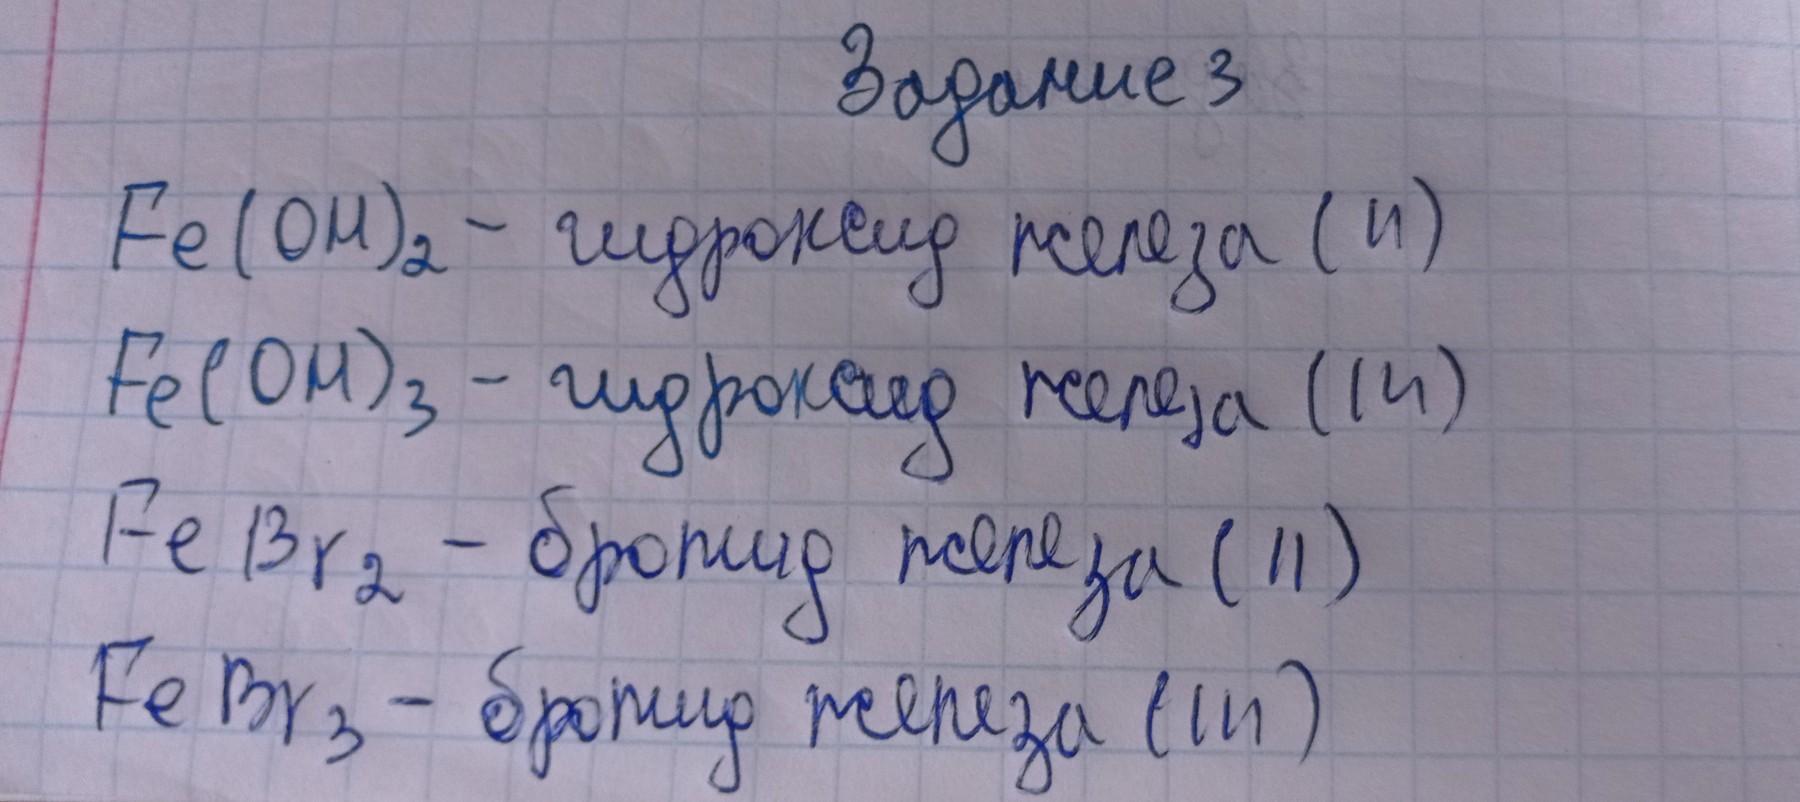 Задание 3
Fe(OH)₂ - гидроксид железа (II)
Fe(OH)₃ - гидроксид железа (III)
FeBr₂ - бромид железа (II)
FeBr₃ - бромид железа (III)